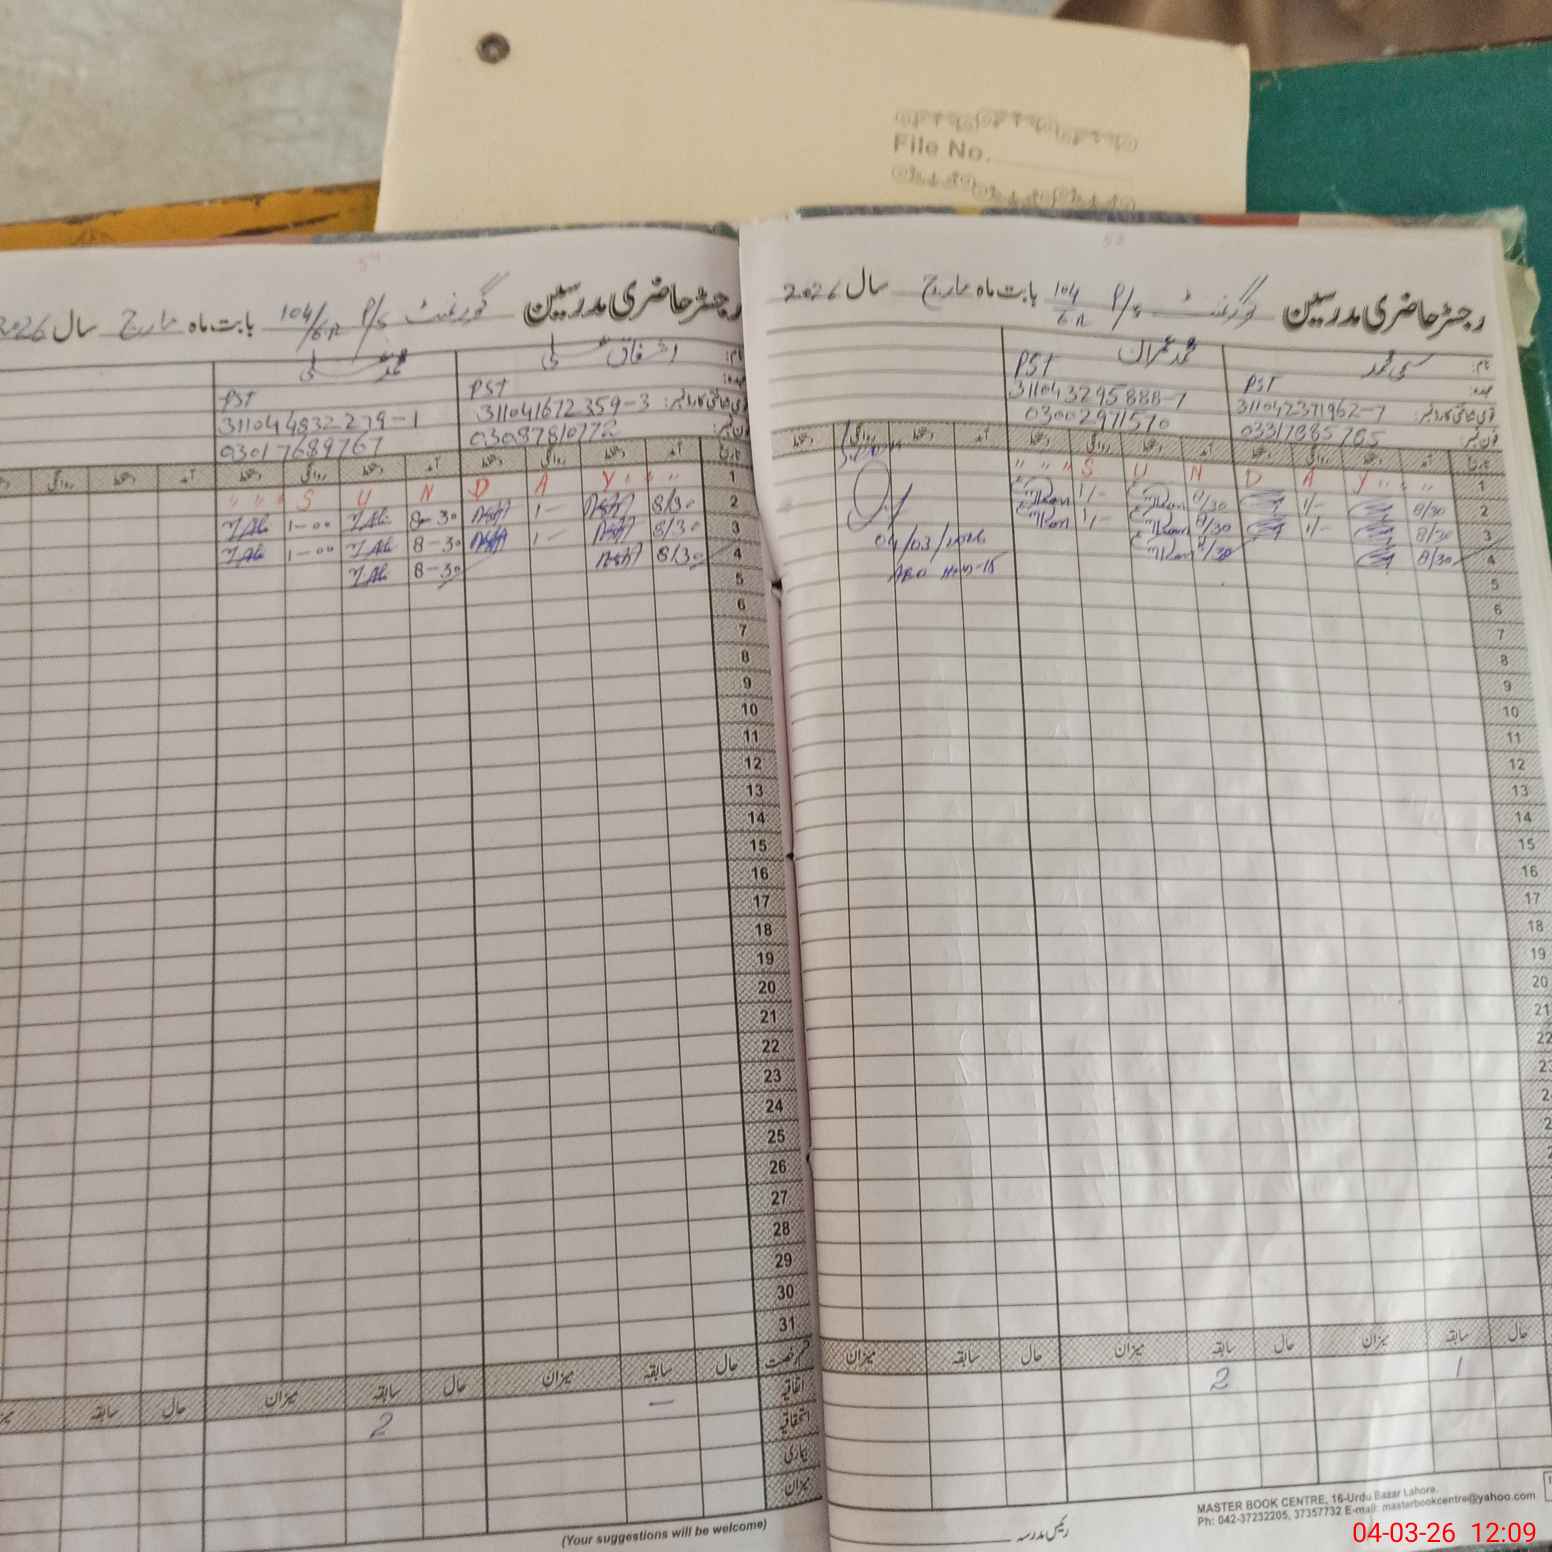 File No.
رجسٹر حاضری مدرسین گورنمنٹ P/S 104/6R بابت ماہ مارچ سال 2026
نام: محمد عمران
عہدہ: PST PST
قومی شناختی کارڈ نمبر: 311042371962-7 311043295888-7
فون نمبر: 03317885705 03002971570
تاریخ آمد دستخط روانگی دستخط آمد دستخط روانگی دستخط آمد دستخط روانگی دستخط
1 " " S U N D A Y " "
2 8/30 1/- 8/30 1/-
3 8/30 1/- 8/30 1/-
4 8/30 8/30
04/03/2026
5
6
7
8
9
10
11
12
13
14
15
16
17
18
19
20
21
22
حال سابقہ میزان حال سابقہ میزان حال سابقہ میزان
1 2
رئیس مدرسہ
MASTER BOOK CENTRE, 16-Urdu Bazar Lahore.
Ph: 042-37232205, 37357732 E-mail: masterbookcentre@yahoo.com
رجسٹر حاضری مدرسین گورنمنٹ P/S 104/6R بابت ماہ مارچ سال 2026
نام: اشفاق علی محمد علی
عہدہ: PST PST
قومی شناختی کارڈ نمبر: 311041672359-3 311044832279-1
فون نمبر: 03087810772 03017689767
تاریخ آمد دستخط روانگی دستخط آمد دستخط روانگی دستخط آمد دستخط روانگی
1 " " S U N D A Y " "
2 8/30 1- 8-30 M.Ali 1-00 M.Ali
3 8/30 1- 8-30 M.Ali 1-00 M.Ali
4 8/30 8-30 M.Ali
5
6
7
8
9
10
11
12
13
14
15
16
17
18
19
20
21
22
23
24
25
26
27
28
29
30
31
قسم رخصت حال سابقہ میزان حال سابقہ میزان حال سابقہ
اتفاقیہ — 2
استحقاقیہ
بیماری
میزان
(Your suggestions will be welcome)
04-03-26 12:09